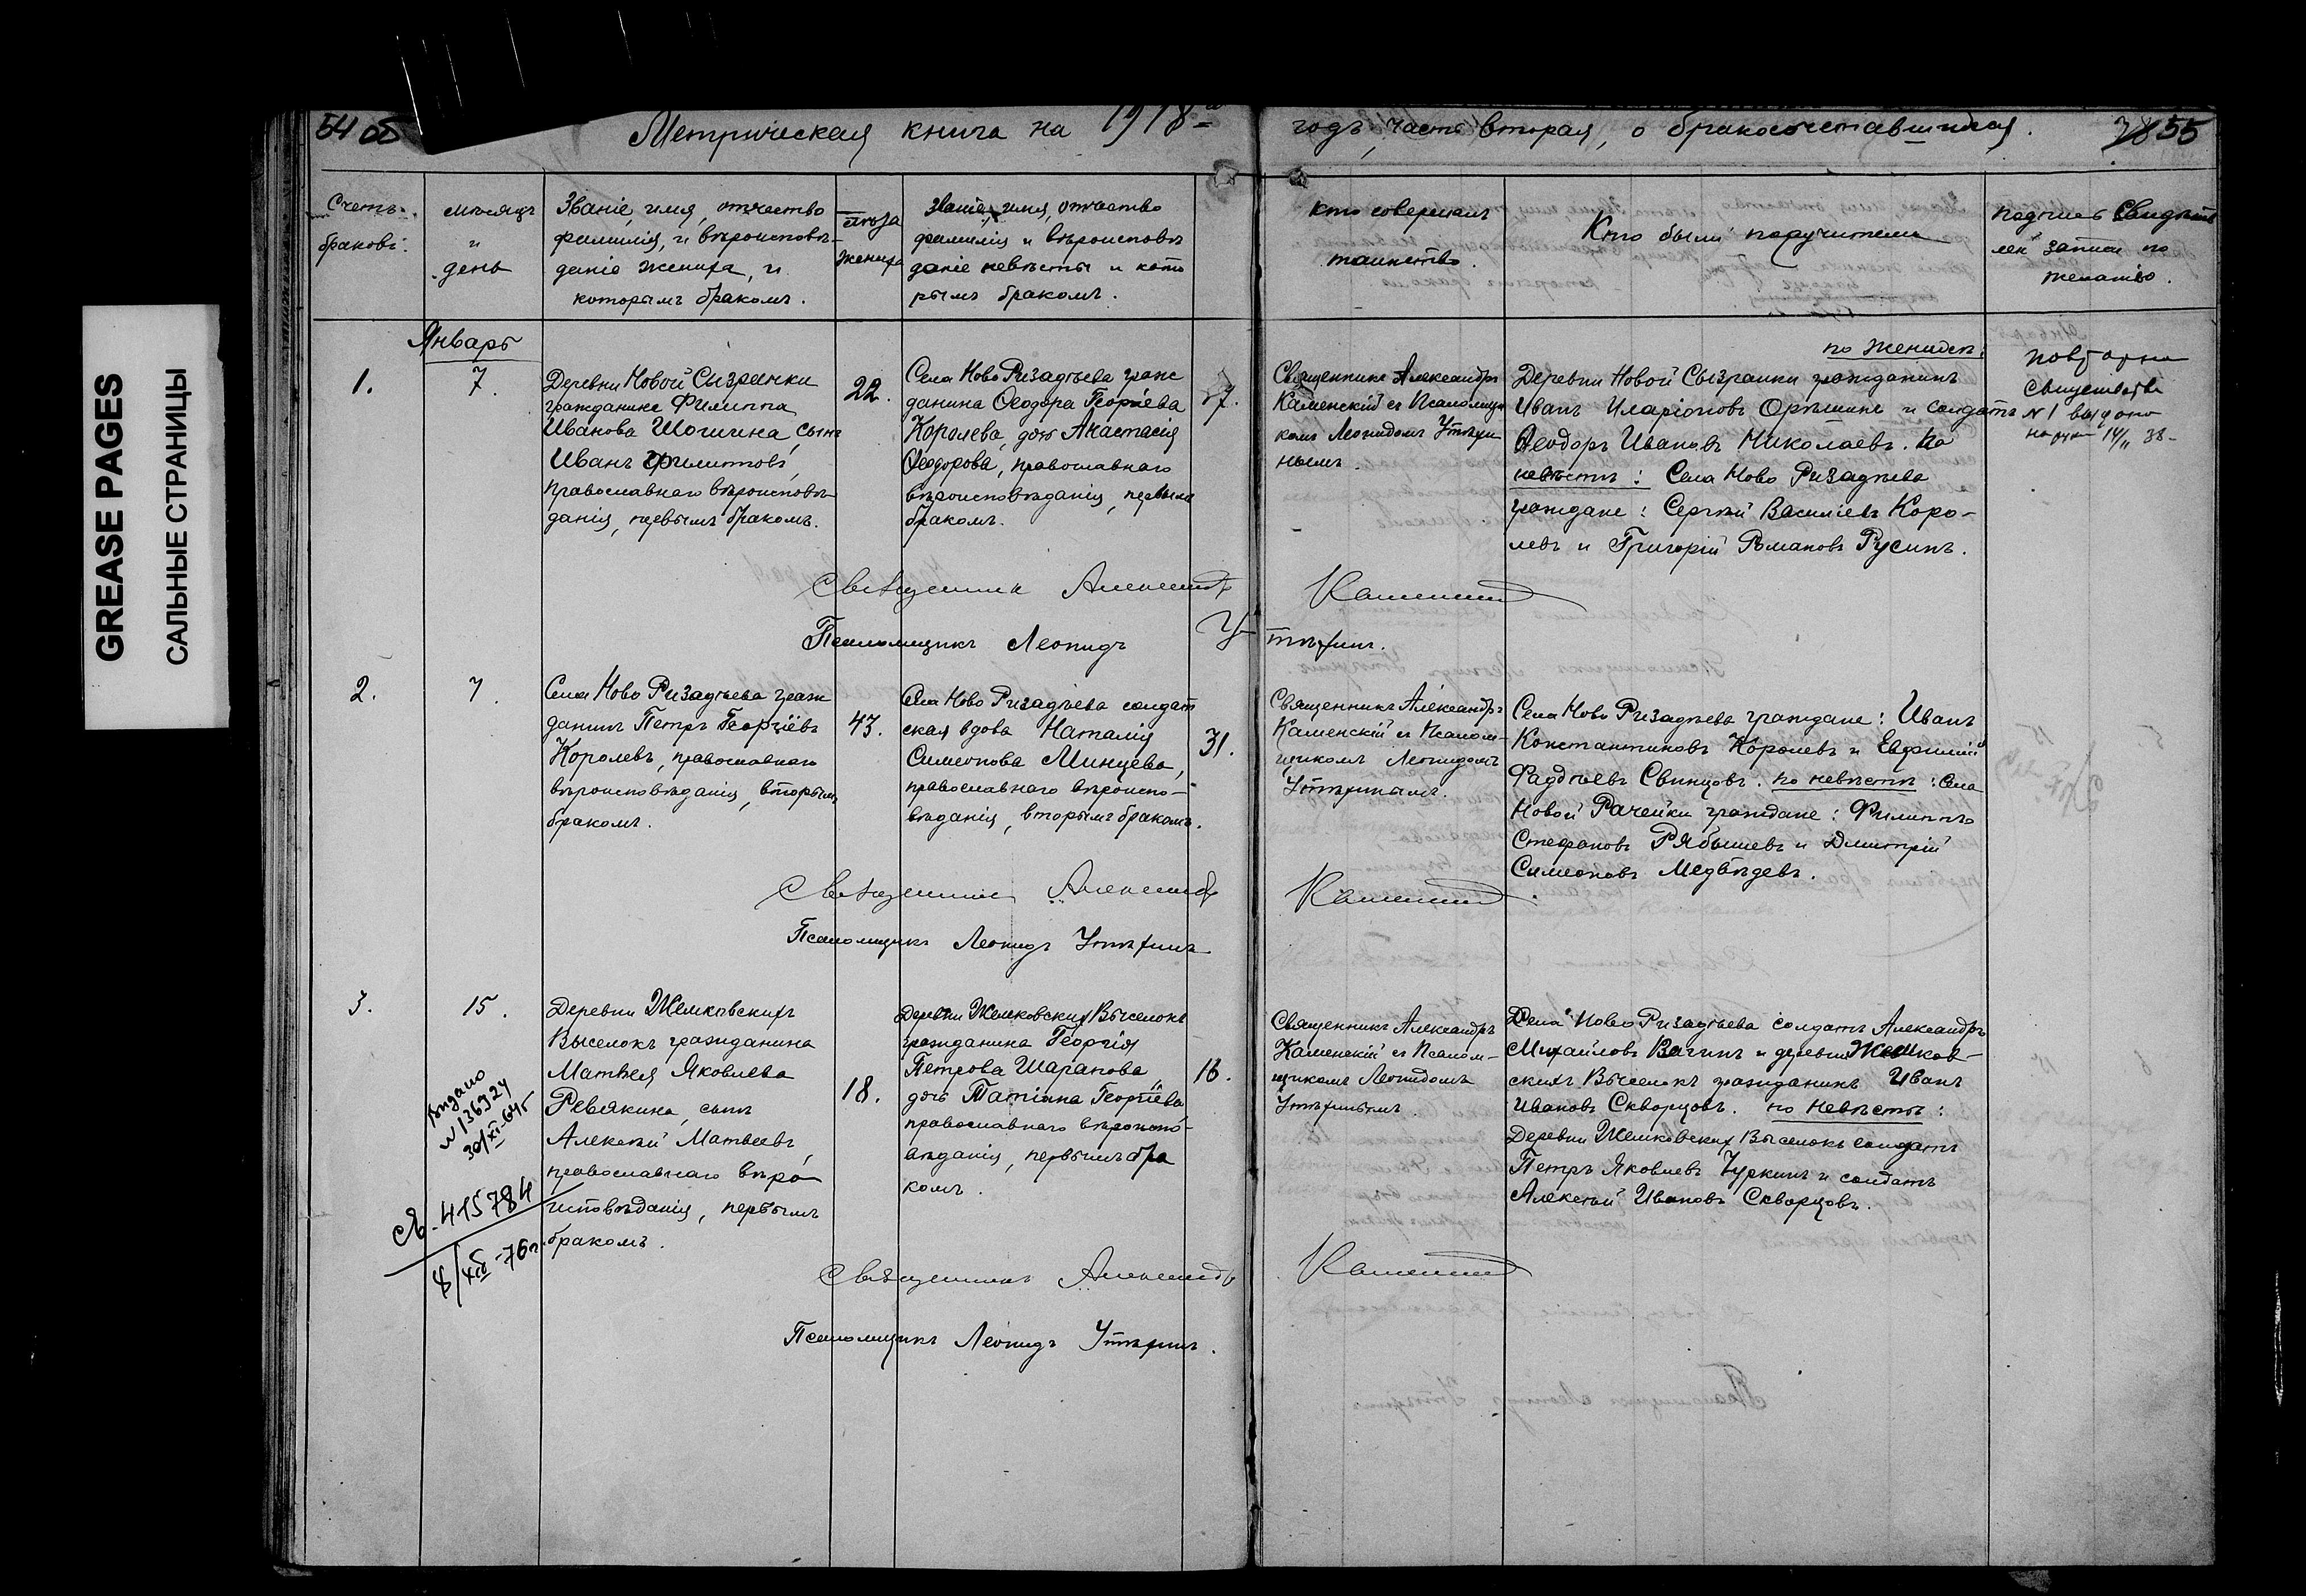 GREASE PAGES
САЛЬНЫЕ СТРАНИЦЫ
54 об
Метрическая книга на 1918
годъ, часть вторая, о бракосочетавшихся.
55
Счетъ
браковъ.
мѣсяцъ
и
день
Званіе, имя, отчество
фамилія, и вѣроисповѣ-
даніе жениха, и
которымъ бракомъ.
лѣта
жениха
Званіе, имя, отчество
фамилія и вѣроисповѣ
даніе невѣсты и кото
рымъ бракомъ.
Кто совершалъ
таинство.
Кто были поручители
Подпись свидѣте
лей записи по
желанію.
Январь
1.
7.
Деревни Новой Сызранки
гражданина Филиппа
Иванова Шошина, сынъ
Иванъ Филипповъ,
православнаго вѣроисповѣ-
данія, первымъ бракомъ.
22.
Села Ново Ризадѣева граж
данина Ѳеодора Георгіева
Королева, дочь Анастасія
Ѳеодорова, православнаго
вѣроисповѣданія, первымъ
бракомъ.
17.
Священникъ Александръ
Каменскій съ Псаломщи
комъ Леонидомъ Утѣхи
нымъ.
по женихѣ:
Деревни Новой Сызранки гражданинъ
Иванъ Иларіоновъ Орѣшинъ и солдатъ
Ѳеодоръ Ивановъ Николаевъ. По
невѣстѣ: Села Ново Ризадѣева
граждане: Сергѣй Васильевъ Коро-
левъ и Григорій Романовъ Русинъ.
Повторно
свидетельство
№ 1 выдано
на руки 14/II 38-
Священникъ Александръ Каменскій
Псаломщикъ Леонидъ Утѣхинъ.
2.
7.
Села Ново Ризадѣева граж
данинъ Петръ Георгіевъ
Королевъ, православнаго
вѣроисповѣданія, вторымъ
бракомъ.
43.
Села Ново Ризадѣева солдат
ская вдова Наталія
Симеонова Минцева,
православнаго вѣроиспо-
вѣданія, вторымъ бракомъ.
31.
Священникъ Александръ
Каменскій съ Псалом-
щикомъ Леонидомъ
Утѣхинымъ.
Села Ново Ризадѣева граждане: Иванъ
Константиновъ Королевъ и Евфимій
Фаддѣевъ Свинцовъ. по невѣстѣ: Села
Новой Рачейки граждане: Филиппъ
Стефановъ Рябышевъ и Димитрій
Симеоновъ Медвѣдевъ.
Священникъ Александръ Каменскій
Псаломщикъ Леонидъ Утѣхинъ
3.
15.
Деревни Жемковскихъ
Выселокъ гражданина
Матвея Яковлева
Ревякина, сынъ
Алексѣй Матвеевъ,
православнаго вѣро-
исповѣданія, первымъ
бракомъ.
18.
Деревни Жемковскихъ Выселокъ
гражданина Георгія
Петрова Шарапова
дочь Татіана Георгіева
православнаго вѣроиспо-
вѣданія, первымъ бра
комъ.
16.
Священникъ Александръ
Каменскій съ Псалом-
щикомъ Леонидомъ
Утѣхинымъ.
Села Ново Ризадѣева солдатъ Александръ
Михайловъ Вагинъ и деревни Жемков-
скихъ Выселокъ гражданинъ Иванъ
Ивановъ Скворцовъ. по невѣстѣ:
Деревни Жемковскихъ Выселокъ солдатъ
Петръ Яковлевъ Чуркинъ и солдатъ
Алексѣй Ивановъ Скворцовъ.
Выдано
№ 136924
30/XI-64г
415784
Священникъ Александръ Каменскій
Псаломщикъ Леонидъ Утѣхинъ.